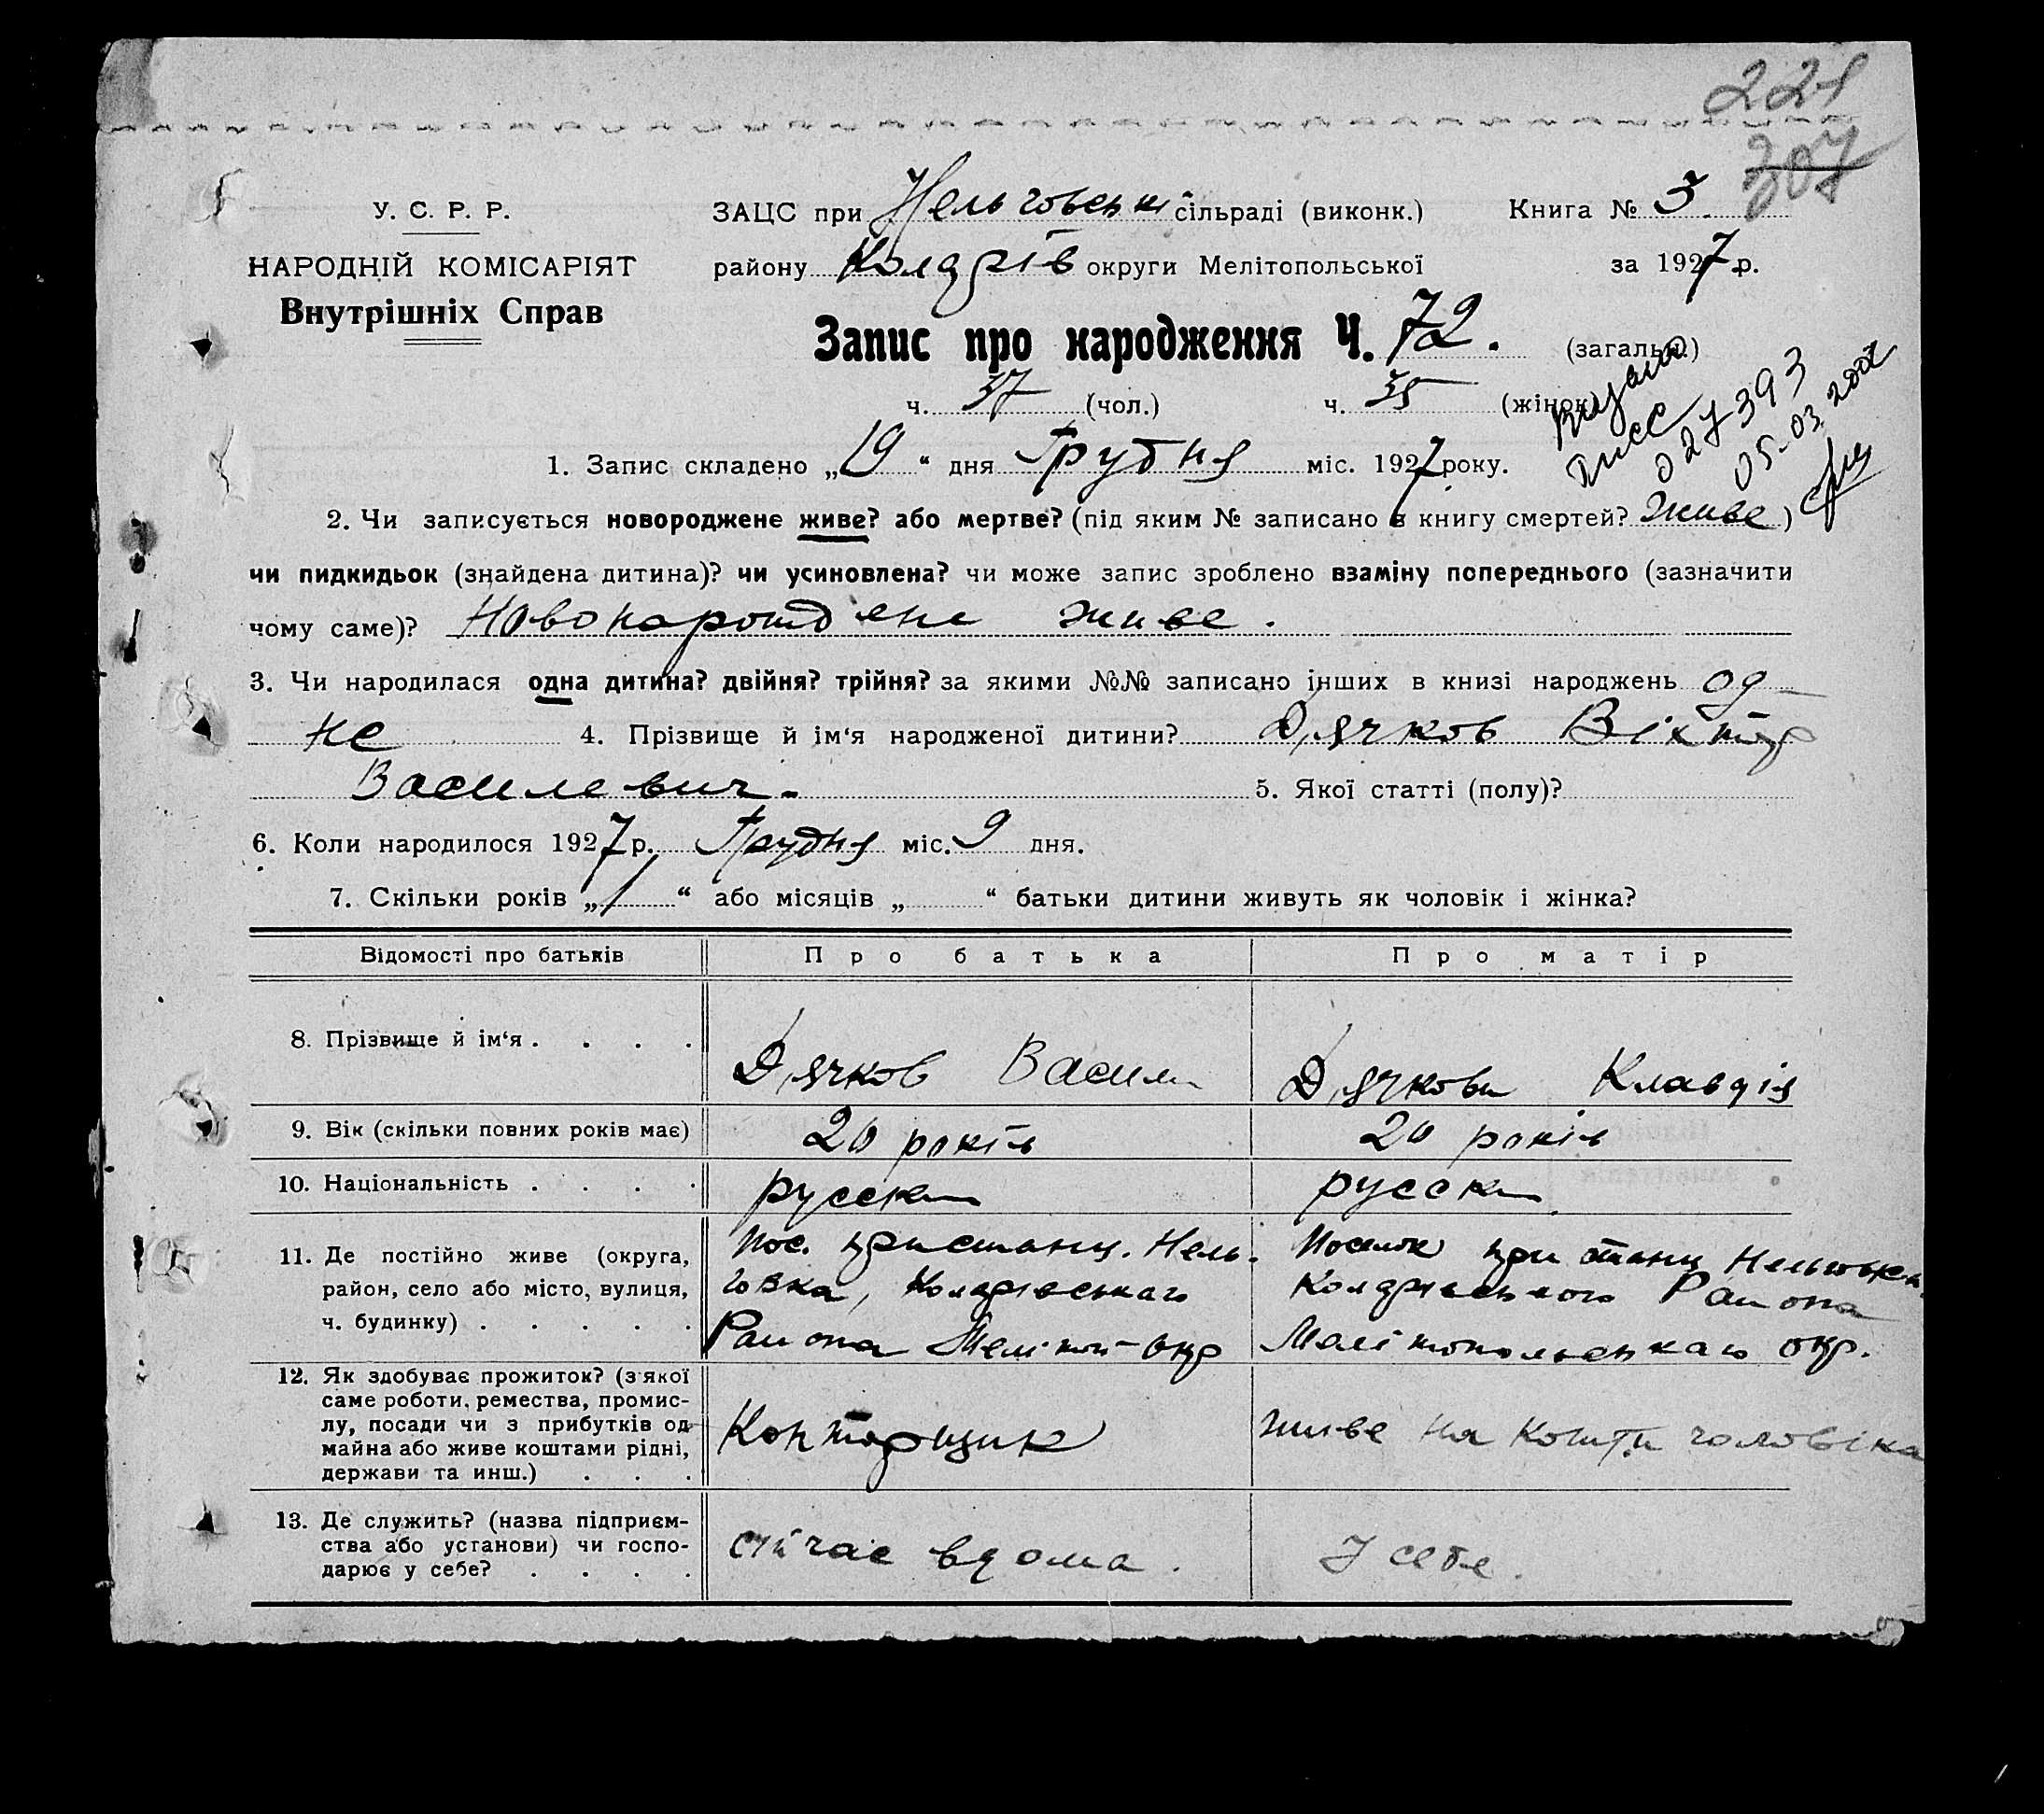 221
307
У. С. Р. Р.
НАРОДНІЙ КОМІСАРІЯТ
Внутрішніх Справ
ЗАЦС при Нельговські сільраді (виконк.)
Книга № 3
району Колдрів округи Мелітопольської
за 1927 р.
Запис про народження Ч. 72. (загальн.)
ч. 37 (чол.) ч. 35 (жінок)
027393
05.03
1. Запис складено „19“ дня Грудня міс. 1927 року.
2. Чи записується новороджене живе? або мертве? (під яким № записано в книгу смертей? Живе)
чи пидкидьок (знайдена дитина)? чи усиновлена? чи може запис зроблено взаміну попереднього (зазначити
чому саме)? Новонарожд ене живе.
3. Чи народилася одна дитина? двійня? трійня? за якими №№ записано інших в книзі народжень од
не 4. Прізвище й ім‘я народженої дитини? Д,ячков Віктор
Василевич. 5. Якої статті (полу)?
6. Коли народилося 1927 р. Грудня міс. 9 дня.
7. Скільки років „1“ або місяців „ “ батьки дитини живуть як чоловік і жінка?
Відомості про батьків Про батька Про матір
8. Прізвище й ім‘я . . . . Д,ячков Васил Д,ячкова Клавдія
9. Вік (скільки повних років має) 20 років 20 років
10. Національність . . . . русск русск
11. Де постійно живе (округа,
район, село або місто, вулиця,
ч. будинку) . . . . .
Пос. пристанц. Нель-
говка, Колдрівськаго
Района Меліт окр
Поселок при станц Нельговка
Колдрівського Района
Мелітопольськаго окр.
12. Як здобуває прожиток? (з якої
саме роботи, ремества, промис-
лу, посади чи з прибутків од
майна або живе коштами рідні,
держави та инш.) . . .
Конторщик
живе на кошти чоловіка
13. Де служить? (назва підприєм-
ства або установи) чи госпо-
дарює у себе? . . . .
сичас вдома.
У себе.